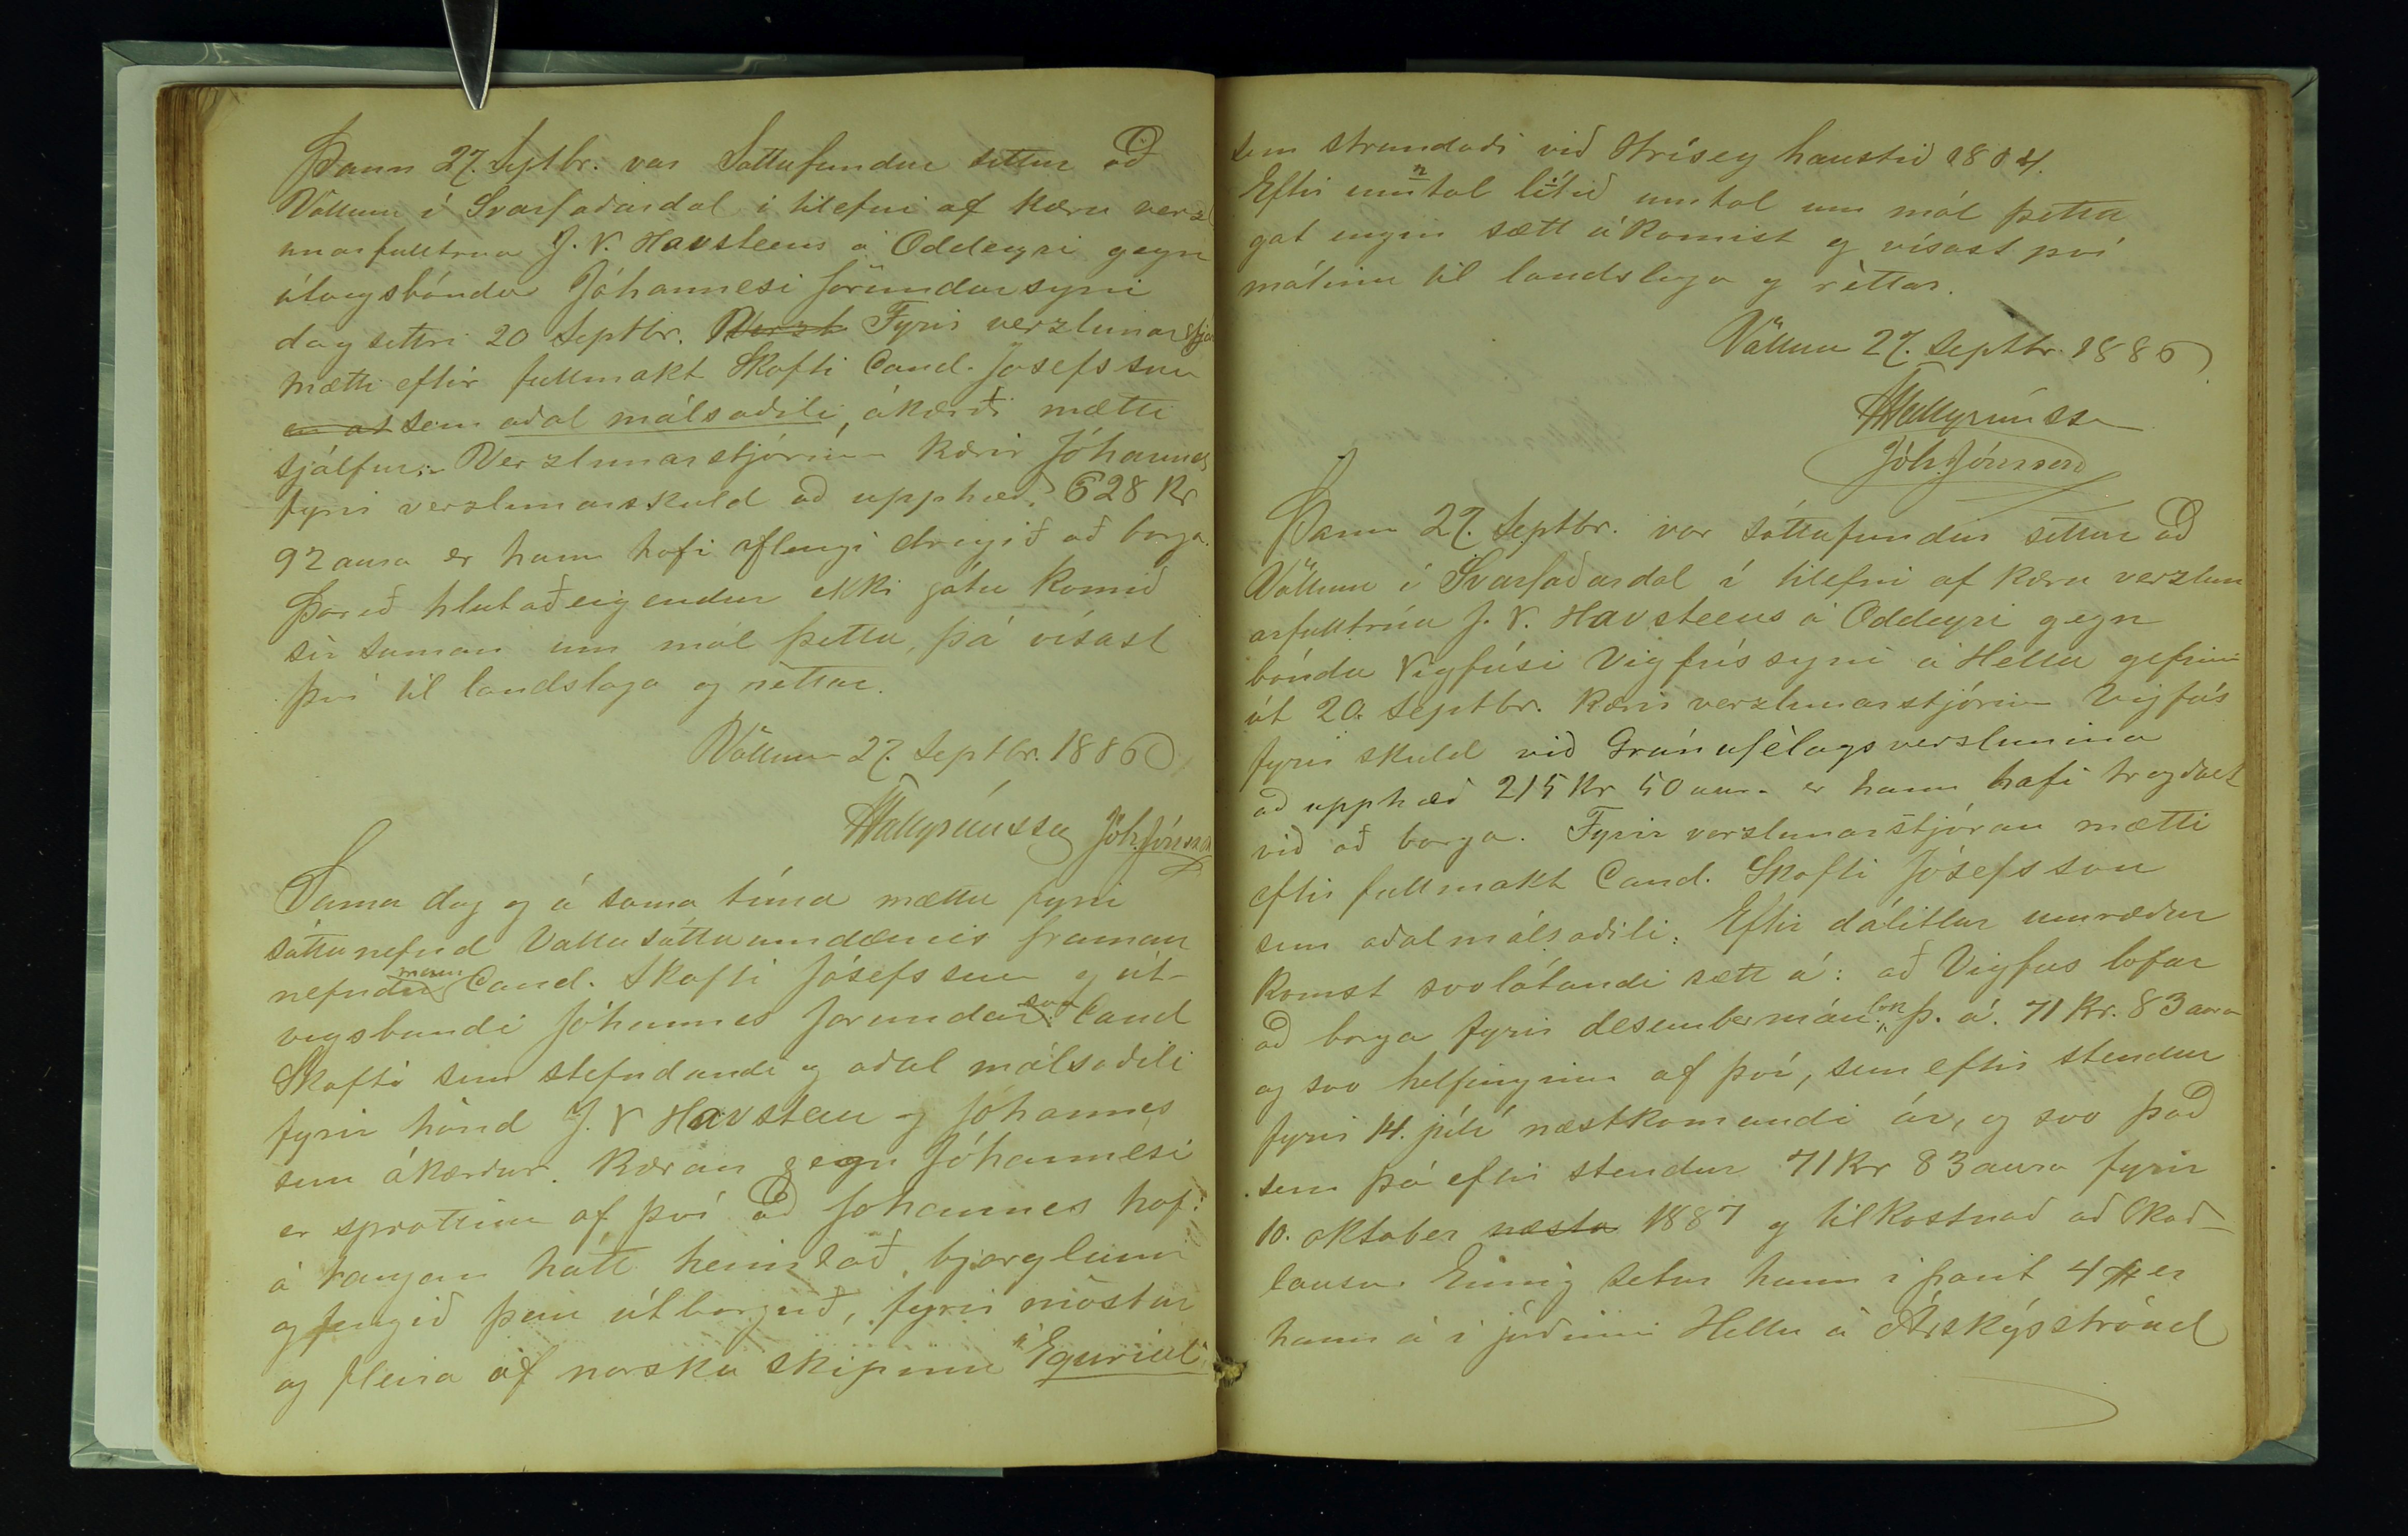 Þann 27. Septbr. var Sáttafundur settur að
Völlum í Svarfaðardal í tilefni af kæru verzl
unarfulltrúa J. V. Havsteens á Oddeyri gegn
útvegsbónda Jóhannesi Jörundarsyni
dagsettri 20 Septbr. Verzl Fyrir verzlunarstjór
mætti eftir fullmakt Skafti Cand. Josefsson
en at sem aðal málsaðili, ákærði mætti
sjálfur. Verzlunarstjórinn kærir Jóhannes
fyrir verzlunarskuld að upphæð 628 kr
92 aura er hann hafi oflengi dregið að borga.
Þareð hlutaðeigendur ekki gátu komið
sér saman um mál þetta, þá vísast
því til landslaga og réttar.
Völlum 27. Septbr. 1886
Hallgrímsson Jóh. Jónsson
Sama dag og á sama tíma mættu fyrir
sáttanefnd Vallasáttaumdæmis framan
nefndir menn Cand. Skafti Jósefsson og út-
vegsbondi Jóhannes Jorundarson Cand
Skafti sem stefnandi og aðal málsaðili
fyrir hönd J. V Havsteen og Jóhannes
sem ákærður. Kæran gegn Jóhannesi
er sprottin af því að Johannes hafi
á rangan hátt heimtað bjarglaun
og fengið þau útborguð, fyrir möstur
og fleira af norska skipinu "Egeriat"
sem strandaði við Hrísey haustið 1884.
Eftir umtal lítið umtal um mál þetta
gat engin sætt ákomist og vísast því
málinu til landslaga og réttar.
Völlum 27. Septbr. 1886
Hallgrímsson
Jóh. Jónsson
Þann 27. Septbr. var sáttafundur settur að
Völlum í Svarfaðardal í tilefni af kæru verzlun
arfulltrúa J. V. Havsteens á Oddeyri gegn
bónda Vigfúsi Vigfússyni á Hellu gefinni
út 20. Septbr. Kærir verzlunarstjórinn Vigfús
fyrir skuld við Gránufélagsverslunina
að upphæð 215 Kr 50 aur. er hann hafi tregðast
við að borga. Fyrir verzlunarstjóran mætti
eftir fullmakt Cand. Skafti Jósefsson
sem aðalmálsaðili. Eftir dálitlar umræður
komst svolátandi sætt á: að Vigfus lofar
að borga fyrir desembermán.lok þ. á. 71 Kr. 83 aura
og svo helfinginn af því, sem eftir stendur
fyrir 14. júlí næstkomandi ár, og svo það
sem þá eftir stendur 71 Kr 83 aura fyrir
10. oktober næsta 1887 og tilkostnað að skað-
lausu. Einnig setur hann í pant 4 # er
hann á í jörðinni Hellu á Árskógsströnd